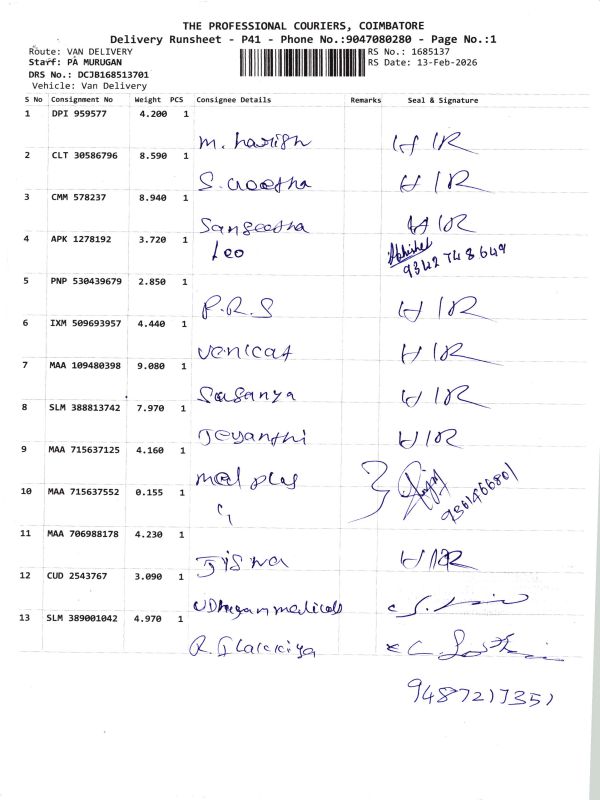 THE PROFESSIONAL COURIERS, COIMBATORE
Delivery Runsheet - P41 - Phone No.:9047080280 - Page No.:1
Route: VAN DELIVERY RS No.: 1685137
Staff: PA MURUGAN RS Date: 13-Feb-2026
DRS No.: DCJB168513701
Vehicle: Van Delivery
S No Consignment No Weight PCS Consignee Details Remarks Seal & Signature
1 DPI 959577 4.200 1
M. harish H/R
2 CLT 30586796 8.590 1
S. H/R
3 CMM 578237 8.940 1
Sangeetha H/R
4 APK 1278192 3.720 1
Leo Abhishek
9342748649
5 PNP 530439679 2.850 1
P.R.S H/R
6 IXM 509693957 4.440 1
venkat H/R
7 MAA 109480398 9.080 1
Saganya H/R
8 SLM 388813742 7.970 1
Jeyanthi H/R
9 MAA 715637125 4.160 1
med plus
10 MAA 715637552 0.155 1
9361466801
11 MAA 706988178 4.230 1
Jisna H/R
12 CUD 2543767 3.090 1
UDhayam medicals
13 SLM 389001042 4.970 1
R. Ilakkiya
9487217351